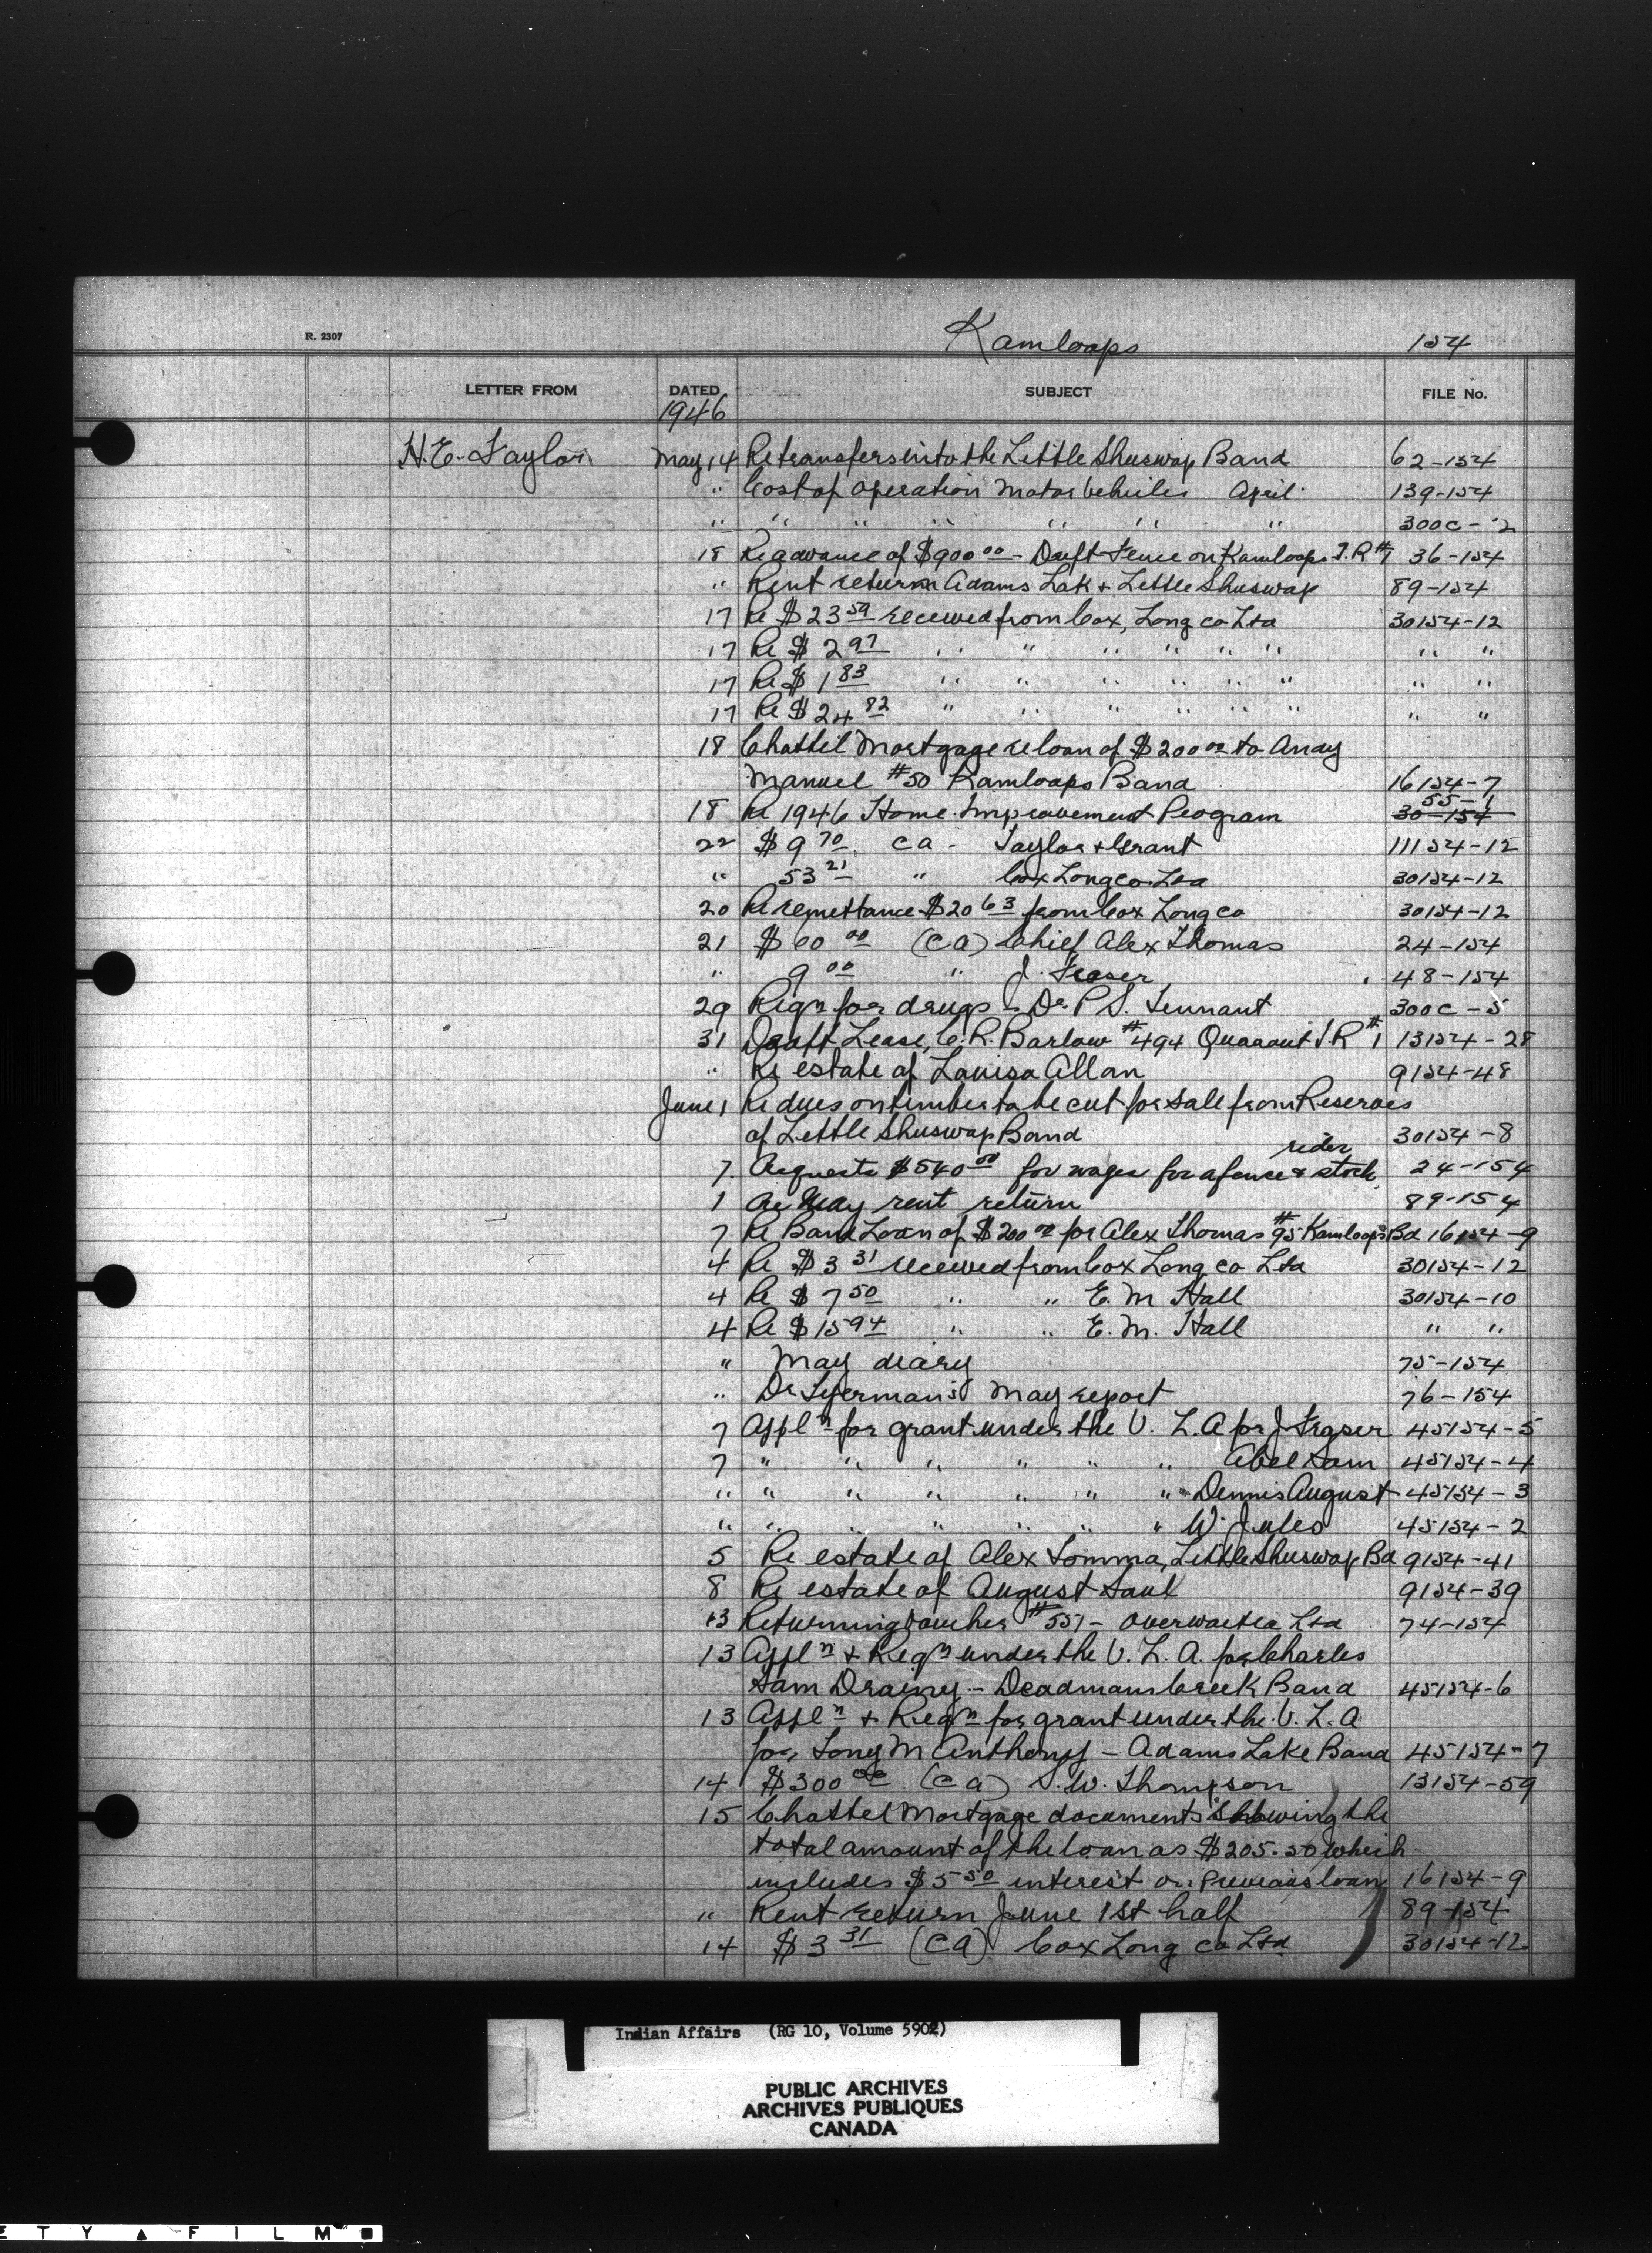 R. 2307
Kamloops 154
LETTER FROM DATED SUBJECT FILE No.
1946
H.E. Taylor May 14 Re transfers into the Little Shuswap Band 62-154
" Cost of operation Motor Vehicles April 139-154
" " " " " " " 300C-2
18 Re advance of $900 00 - Drift Fence on Kamloops I.R #1 36-154
" Rent return Adams Lak + Little Shuswap 89-154
17 Re $23 59 received from Cox, Long co Ltd 30154-12
17 Re $2 97 " " " " " " " "
17 Re $1 83 " " " " " " " "
17 Re $24 82 " " " " " " " "
18 Chattel Mortgage re loan of $200 00 to Andy
Manuel #50 Kamloops Band 16154-7
55-1
18 Re 1946 Home Improvement Program 30-154
22 $9 70 ca - Taylor + Grant 11154-12
" 53 21 " Cox Long co Ltd 30154-12
20 Re remittance $20 63 from Cox Long co 30154-12
21 $60 00 (ca) Chief Alex Thomas 24-154
" 9 00 " J. Fraser 48-154
29 Reqn for drugs - Dr P S. Tennant 300C-5
31 Draft Lease, C.R. Barlow #494 Quaaout I.R #1 13154-28
" Re estate of Louisa Allan 9154-48
June 1 Re dues on timber to be cut for sale from Reserves
of Little Shuswap Band 30154-8
rider
7. Requests $540 00 for wages for a fence & stock 24-154
1 Re May rent return 89-154
7 Re Band Loan of $200 00 for Alex Thomas #95 Kamloops Bd 16154-9
4 Re $3 31 received from Cox Long co Ltd 30154-12
4 Re $7 50 " " E. M Hall 30154-10
4 Re $15 94 " " E. M. Hall " "
" May diary 75-154
" Dr May report 76-154
7 Appln for grant under the V. L. A for J Fraser 45154-5
7 " " " " " " Abel Sam 45154-4
" " " " " " " Dennis August 45154-3
" " " " " " " W. Jules 45154-2
5 Re estate of Alex Tomma, Little Shuswap Bd 9154-41
8 Re estate of August Saul 9154-39
13 Returning Voucher #551 - Overwaitea Ltd 74-154
13 Appln + Reqn under the V. L. A. for Charles
Sam Draney - Deadmans Creek Band 45154-6
13 Appln + Reqn for grant under the V. L. A
for Tony M Anthony - Adams Lake Band 45154-7
14 $300 00 (ca) S. W. Thompson 13154-59
15 Chattel Mortgage documents showing the
total amount of the loan as $205.50 which
includes $5 50 interest on Previous loan 16154-9
" Rent return June 1st half 89-154
14 $3 31 (ca) Cox Long co Ltd 30154-12
Indian Affairs (RG 10, Volume 5902)
PUBLIC ARCHIVES
ARCHIVES PUBLIQUES
CANADA
E T Y ▲ F I L M